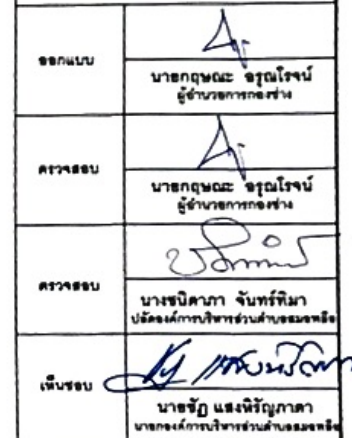 ออกแบบ
นายกฤษณะ อรุณโรจน์
ผู้อำนวยการกองช่าง
ตรวจสอบ
นายกฤษณะ อรุณโรจน์
ผู้อำนวยการกองช่าง
ตรวจสอบ
นางชนิดาภา จันทร์ทิมา
ปลัดองค์การบริหารส่วนตำบลสมอพลือ
เห็นชอบ
นายชัฏ แสงหิรัญภาดา
นายกองค์การบริหารส่วนตำบลสมอพลือ